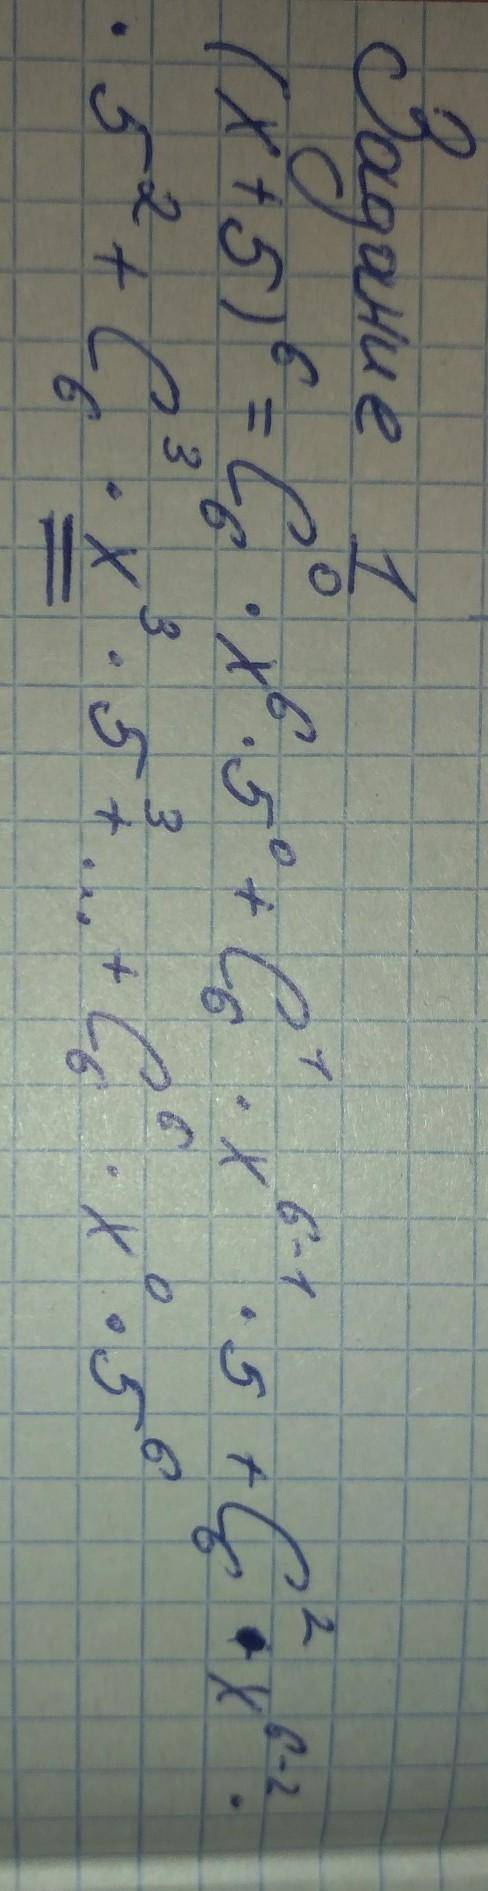 Задание 1
(x+5)⁶ = C₆⁰ · x⁶ · 5⁰ + C₆¹ · x⁶⁻¹ · 5 + C₆² · x⁶⁻² ·
· 5² + C₆³ · x³ · 5³ + ... + C₆⁶ · x⁰ · 5⁶